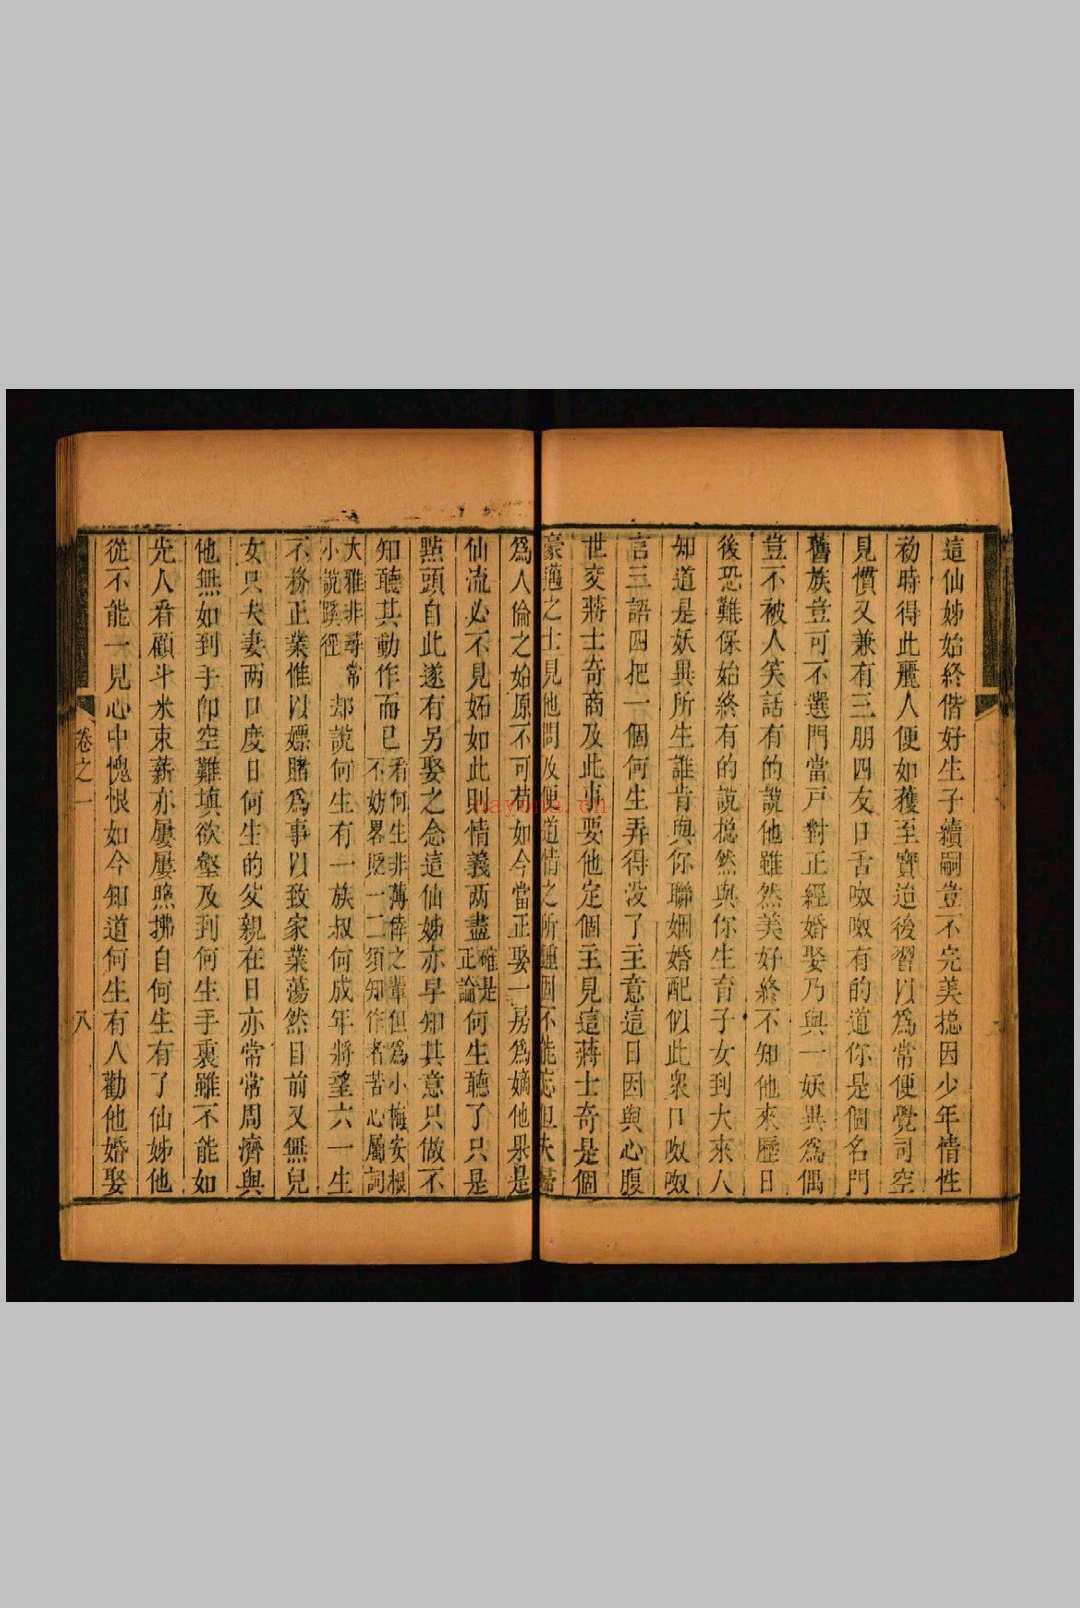 這仙姊始終偕好生子續嗣豈不完美捴因少年情性
初時得此麗人便如獲至寶迨後習以爲常便覺司空
見慣又兼有三朋四友口舌呶呶有的道你是個名門
舊族豈可不選門當戸對正經婚娶乃與一妖異爲偶
豈不被人笑話有的說他雖然美好終不知他來歷日
後恐難保始終有的說捴然與你生育子女到大來人
知道是妖異所生誰肯與你聯姻婚配似此衆口呶呶
言三語四把一個何生弄得没了主意這日因與心腹
世交蔣士奇商及此事要他定個主見這蔣士奇是個
豪邁之士見他問及便道情之所鍾固不能忘但夫婦
爲人倫之始原不可苟如今當正娶一房爲嫡他果是
仙流必不見妬如此則情義两盡確是正論何生聽了只是
點頭自此遂有另娶之念這仙姊亦早知其意只做不
知聽其動作而已看何生非薄倖之輩但爲小悔安根不妨畧貶一二須知作者苦心屬詞
大雅非尋常小說蹊徑却說何生有一族叔何成年將望六一生
不務正業惟以嫖賭爲事以致家業蕩然目前又無兒
女只夫妻两口度日何生的父親在日亦常常周濟與
他無如到手卽空難填欲壑及到何生手裏雖不能如
先人看顧斗米束薪亦屢屢照拂自何生有了仙姊他
從不能一見心中愧恨如今知道何生有人勸他婚娶
卷之一
八
nayona.cn